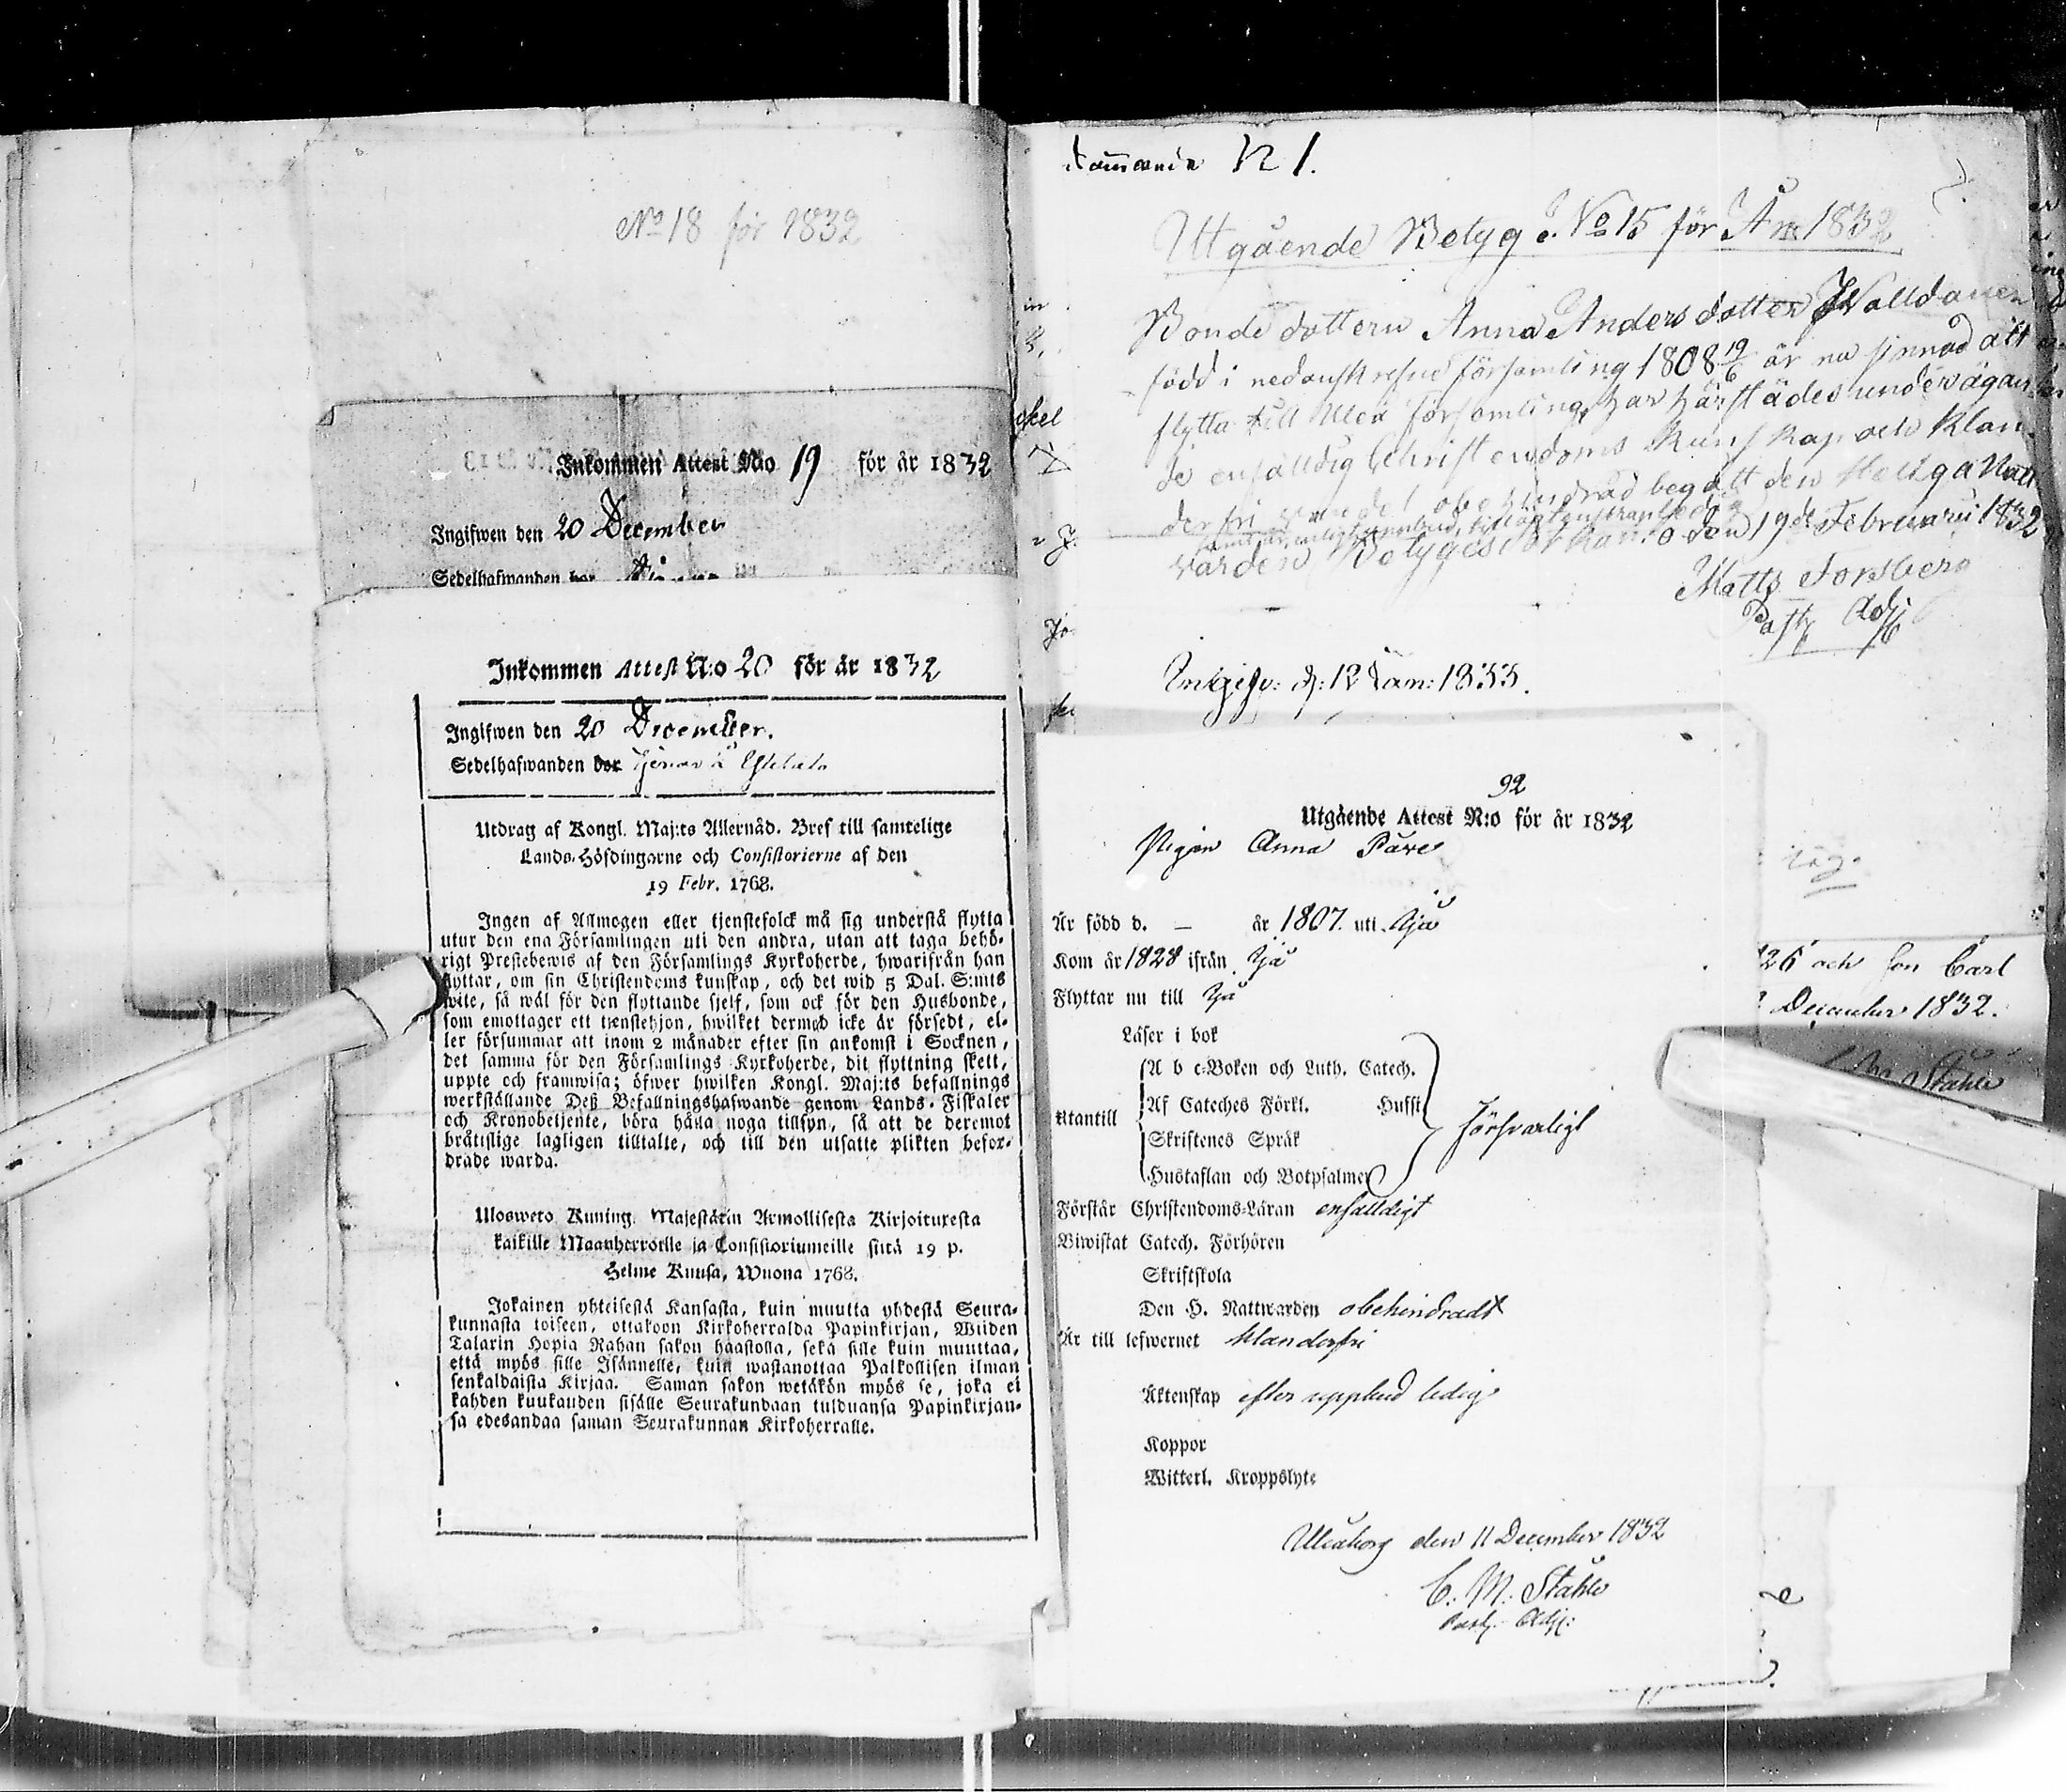 No 18 för 1832
Inkommen Attest No 19 för år 1832
Ingifwen den 20 December
Sedelhafwanden har
Inkommen Attest N:o 20 för år 1832
Ingifwen den 20 December.
Sedelhafwanden har
Utdrag af Kongl. Maj:ts Allernåd. Bref till samtelige
Lands-Höfdingarne och Consistorierne af den
19 Febr. 1768.
Ingen af Allmogen eller tjenstefolck må sig understå flytta
utur den ena Församlingen uti den andra, utan att taga behö-
rigt Prestebewis af den Församlings Kyrkoherde, hwarifrån han
flyttar, om sin Christendoms kunskap, och det wid 5 Dal. S:mts
wite, så wäl för den flyttande sjelf, som ock för den Husbonde,
som emottager ett tjenstehjon, hwilket dermed icke är försedt, el-
ler försummar att inom 2 månader efter sin ankomst i Socknen,
det samma för den Församlings Kyrkoherde, dit flyttning skett,
uppte och framwisa; öfwer hwilken Kongl. Maj:ts befallnings
werkställande Deß Befallningshafwande genom Lands-Fiskaler
och Kronobetjente, böra hålla noga tillsyn, så att de deremot
bråtislige lagligen tilltalte, och till den utsatte plikten befor-
drade warda.
Uloswetо Kuning. Majestätin Armollisesta Kirjoituxesta
kaikille Maanherroille ja Consistoriumeille siitä 19 p.
Helme Kuusa, Wuona 1768.
Jokainen yhteisestä Kansasta, kuin muutta yhdestä Seura-
kunnasta toiseen, ottakoon Kirkoherralda Papinkirjan, Wiiden
Talarin Hopia Rahan sakon haastolla, sekä sille kuin muuttaa,
että myös sille Isännelle, kuin wastanottaa Palkollisen ilman
senkaldaista Kirjaa. Saman sakon wetäkön myös se, joka ei
kahden kuukauden sisälle Seurakundaan tulduansa Papinkirjan-
sa edesandaa saman Seurakunnan Kirkoherralle.
N 1.
Utgående Betyg No 15 för År 1832
Bonde dottern Anna Anders dotter Walldanen
född i nedanskrefne församling 1808 19/6 är nu sinnad att
flytta till Uleå församling, har härstädes under ägan-
de enfalldig Christendoms kunskap och klan-
der fri vandel obehindrad begått den Helga Natt
varden Betyges den 19de Februarii 1832
Matts Forsberg
Past. Adj.
Ingifv: d: 12 Jan: 1833.
92
Utgående Attest N:o för år 1832
Pigan Anna Pave
Är född d. — år 1807. uti Ijå
Kom år 1828 ifrån Ijå
Flyttar nu till Ijå
Läser i bok
Utantill
A b c-Boken och Luth. Catech.
Af Cateches Förkl. Hufst.
Skriftenes Språk
Hustaflan och Botpsalmer
försvarligt
Förstår Christendoms-Läran enfalldigt
Biwistat Catech. Förhören
Skriftskola
Den H. Nattwarden obehindradt
Är till lefwernet klanderfri
Äktenskap efter uppbud ledig
Koppor
Witterl. Kroppslyte
Uleåborg den 11 December 1832
C. M. Ståhle
Past. Adj:
126 och son Carl
December 1832.
Ståhle